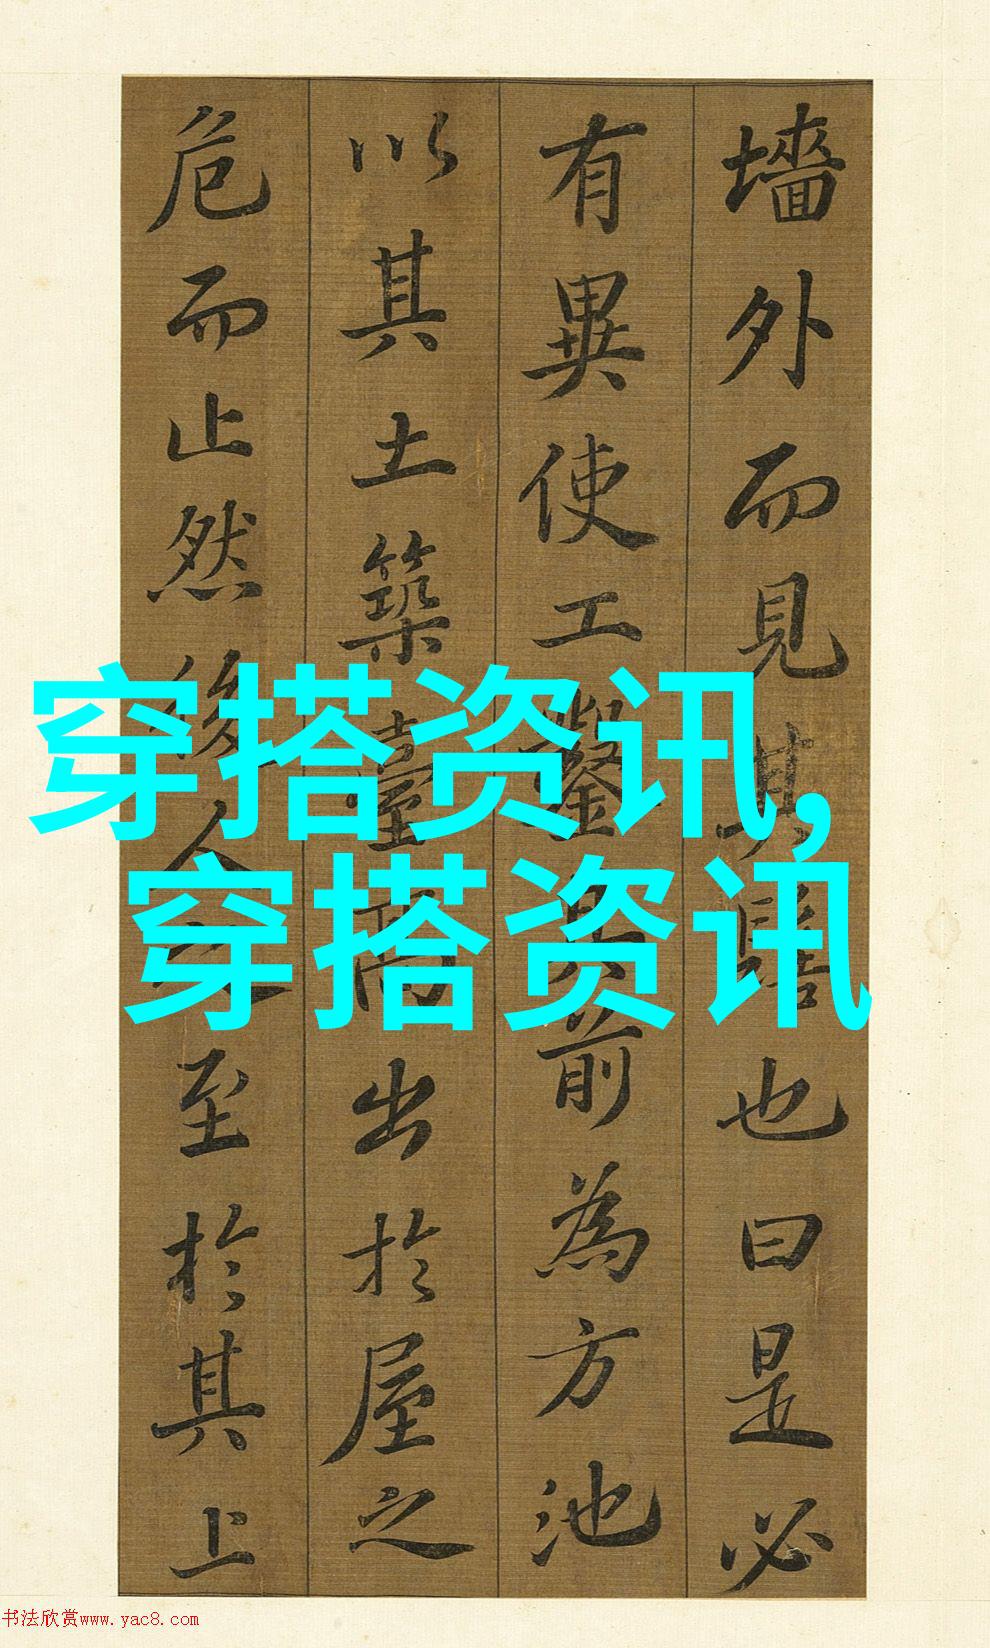 墻外而見其髻也曰是必
有異使工鑿其前為方池
以其土築臺高出於屋之
危而止然後人之至於其上
穿搭资讯,
穿搭资讯
书法欣赏www.yac8.com